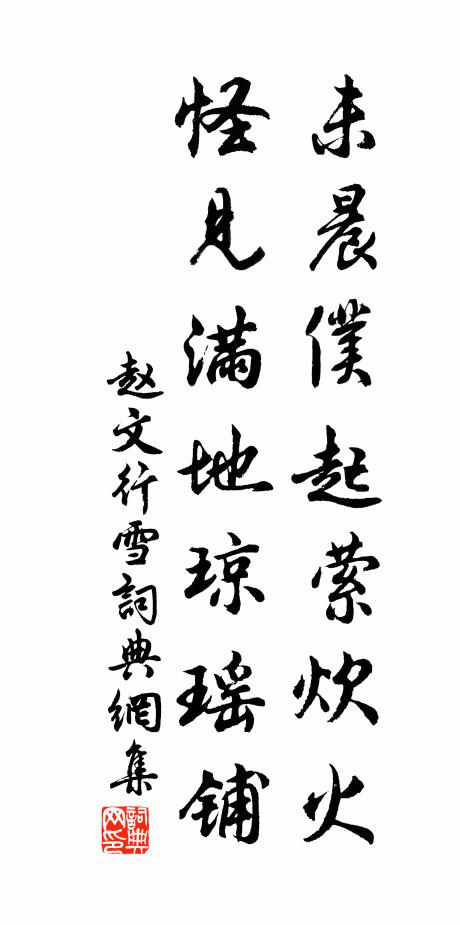 未晨僕起萦炊火
怪见满地琼瑶铺
赵文行雪詞典網集
詞典网印